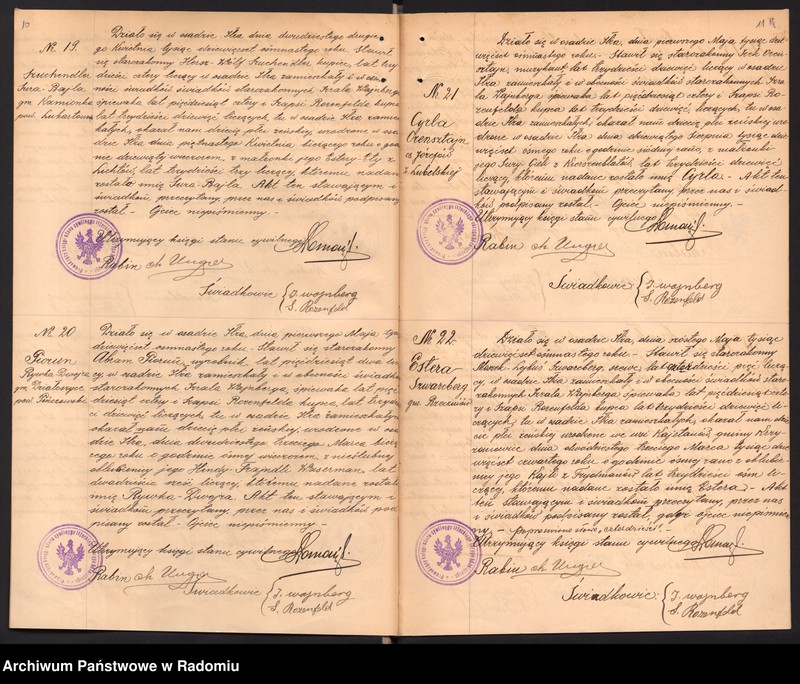 10
№ 19.
Suchendler
Sura Bajla
gm. Kamionka
pow. Lubartowa
Działo się w osadzie Iłża, dnia dwudziestego drugie-
go Kwietnia tysiąc dziewięcset osimnastego roku. Stawił
się starozakonny Hersz-Wolf Suchendler kupiec, lat trzy
dzieści cztery liczący w osadzie Iłża zamieszkały i w obec
ności świadków starozakonnych Izrala Wajnberga
śpiewaka lat pięćdziesiąt cztery i Szapsi Rozenfelda kupca
lat trzydzieści dziewięć liczących, tu w osadzie Iłża zamiesz
kałych, okazał nam dziecię płci żeńskiej, urodzone w osa
dzie Iłża dnia piętnastego Kwietnia bieżącego roku o godzi
nie dziewiątej wieczorem, z małżonki jego Estery-Ity z
lat trzydzieści trzy liczącej, któremu nadane
zostało imię Sura-Bajla. Akt ten stawającym i
świadkom przeczytany, przez nas i świadków podpisany
został. – Ojciec niepiśmienny. –
Utrzymujący księgi stanu cywilnego
Rabin Ch Ungier
Świadkowie { I. Wajnberg
S. Rozenfeld
№ 20
Piorun
Rywka Dwojra
gm. Działoszyce
pow. Pińczowski
Działo się w osadzie Iłża, dnia pierwszego Maja tysiąc
dziewięćset osimnastego roku. – Stawił się starozakonny
Abram Piorun, wyrobnik lat pięćdziesiąt dwa liczą
cy, w osadzie Iłża zamieszkały i w obecności świadków
starozakonnych Izrala Wajnberga, śpiewaka lat pięć
dziesiąt cztery i Szapsi Rozenfelda kupca, lat trzydzieś
ci dziewięć liczących, tu w osadzie Iłża zamieszkałych
okazał nam dziecię płci żeńskiej, urodzone w osa
dzie Iłża, dnia dwudziestego trzeciego Marca bieżą
cego roku o godzinie siódmej wieczorem, z nieślubnej
oblubienicy jego Hindy-Frajndli Waserman lat
dwadzieścia sześć liczącej, któremu nadane zostało
imię Rywka-Dwojra. Akt ten stawającym i
świadkom przeczytany, przez nas i świadków pod
pisany został. – Ojciec niepiśmienny. –
Utrzymujący księgi stanu cywilnego
Rabin Ch Ungier
Świadkowie { I. Wajnberg
S. Rozenfeld
11
№ 21
Cyrla
Orensztajn
z Józefów
z Lubelskiej
Działo się w osadzie Iłża, dnia pierwszego Maja tysiąc dzie
więćset osimnastego roku. – Stawił się starozakonny Icek Oren
sztajn, muzykant lat trzydzieści dziewięć liczący w osadzie
Iłża zamieszkały i w obecności świadków starozakonnych Izra
la Wajnberga śpiewaka lat pięćdziesiąt cztery i Szapsi Ro
zenfelda kupca lat trzydzieści dziewięć, liczących, tu w osa
dzie Iłża zamieszkałych, okazał nam dziecię płci żeńskiej uro
dzone w osadzie Iłża dnia dziewiątego Sierpnia tysiąc dzie
więćset ósmego roku o godzinie siódmej rano, z małżonki
jego Sury Gitli z lat trzydzieści dziewięć
liczącej, któremu nadane zostało imię Cyrla. – Akt ten
stawającym i świadkom przeczytany przez nas i świad
ków, podpisany został. – Ojciec niepiśmienny. –
Utrzymujący księgi stanu cywilnego
Rabin Ch Ungier
Świadkowie { I. Wajnberg
S. Rozenfeld
№ 22.
Estera
Szwarcberg
Działo się w osadzie Iłża, dnia szóstego Maja tysiąc
dziewięćset osimnastego roku. – Stawił się starozakonny
Marek-Lejbuś Szwarcberg, szewc lat czterdzieści pięć liczą
cy, w osadzie Iłża zamieszkały i w obecności świadków staro-
zakonnych Izrala Wajnberga śpiewaka lat pięćdziesiąt czte
ry i Szapsi Rozenfelda kupca lat trzydzieści dziewięć li
czących, tu w osadzie Iłża zamieszkałych, okazał nam dzie
cię płci żeńskiej urodzone we wsi Kajetanów, gminy Krzy
żanowice dnia dwudziestego trzeciego Marca tysiąc dzie
więćset czwartego roku o godzinie ósmej rano z oblubie
nicy jego Kajli z Frydmanów lat trzydzieści siedm li
czącej, któremu nadane zostało imię Estera. – Akt
ten stawającym i świadkom przeczytany, przez nas
i świadków podpisany został, gdyż ojciec niepiśmien
ny. – Poprawiono słowo „czterdzieści". –
Utrzymujący księgi stanu cywilnego
Rabin Ch Ungier
Świadkowie { I. Wajnberg
S. Rozenfeld
Archiwum Państwowe w Radomiu